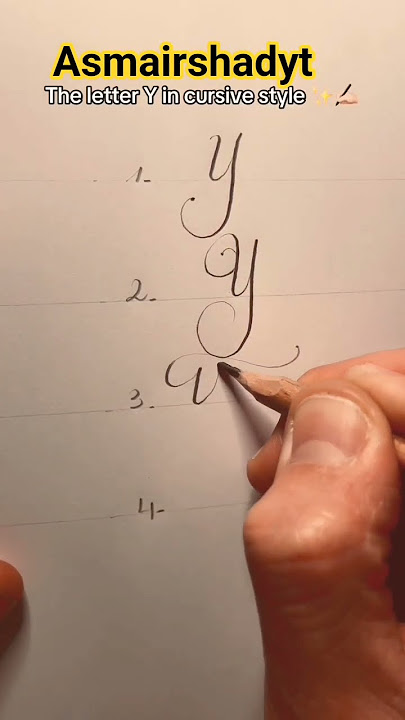 Asmairshadyt
The letter Y in cursive style ✨✍🏻
1- Y
2- Y
3-
4-